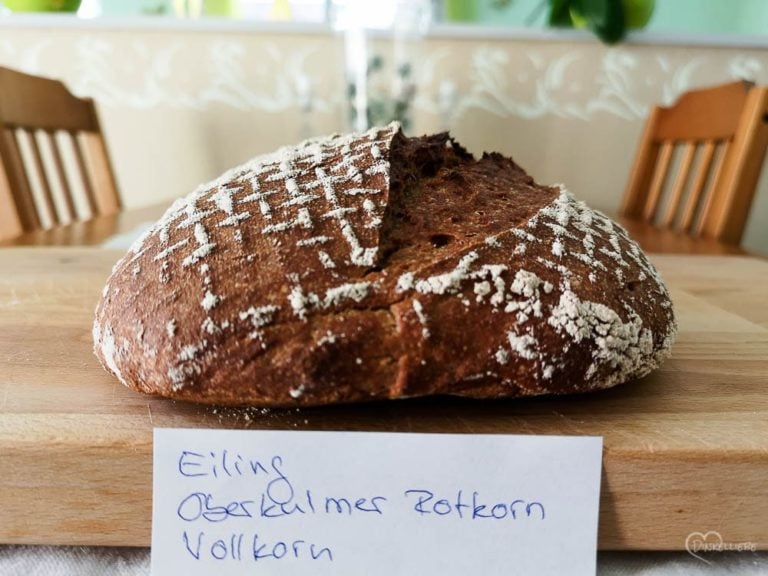 Eiling
Oberkulmer Rotkorn
Vollkorn
DINKELLIEBE